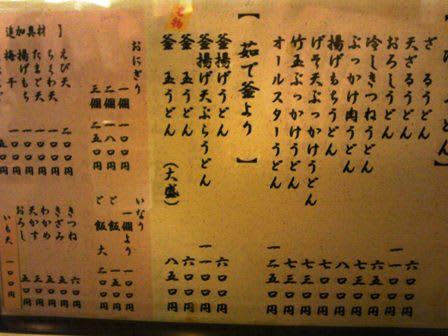 どん】
ざるうどん 六〇〇円
天ざるうどん
おろしうどん 六五〇円
冷しきつねうどん 七〇〇円
ぶっかけ肉うどん 八〇〇円
揚げもちうどん 七〇〇円
げそ天ぶっかけうどん 七三〇円
竹玉ぶっかけうどん 七三〇円
オールスターうどん 一二五〇円
【茹で釜より】
釜揚げうどん 六〇〇円
釜揚げ天ぷらうどん 一一〇〇円
釜玉うどん
釜玉うどん(大盛) 八五〇円
おにぎり
一個 一〇〇円
二個 一八〇円
三個 二五〇円
いなり
一個より 一〇〇円
ご飯 一五〇円
ご飯大 二〇〇円
追加具材】
えび天 二〇〇円
ちくわ天 一五〇円
たまご天 一〇〇円
揚げもち 一〇〇円
梅干
きつね 六〇円
きざみ 五〇円
わかめ 五〇円
天かす 五〇円
おろし
いも天 一〇〇円